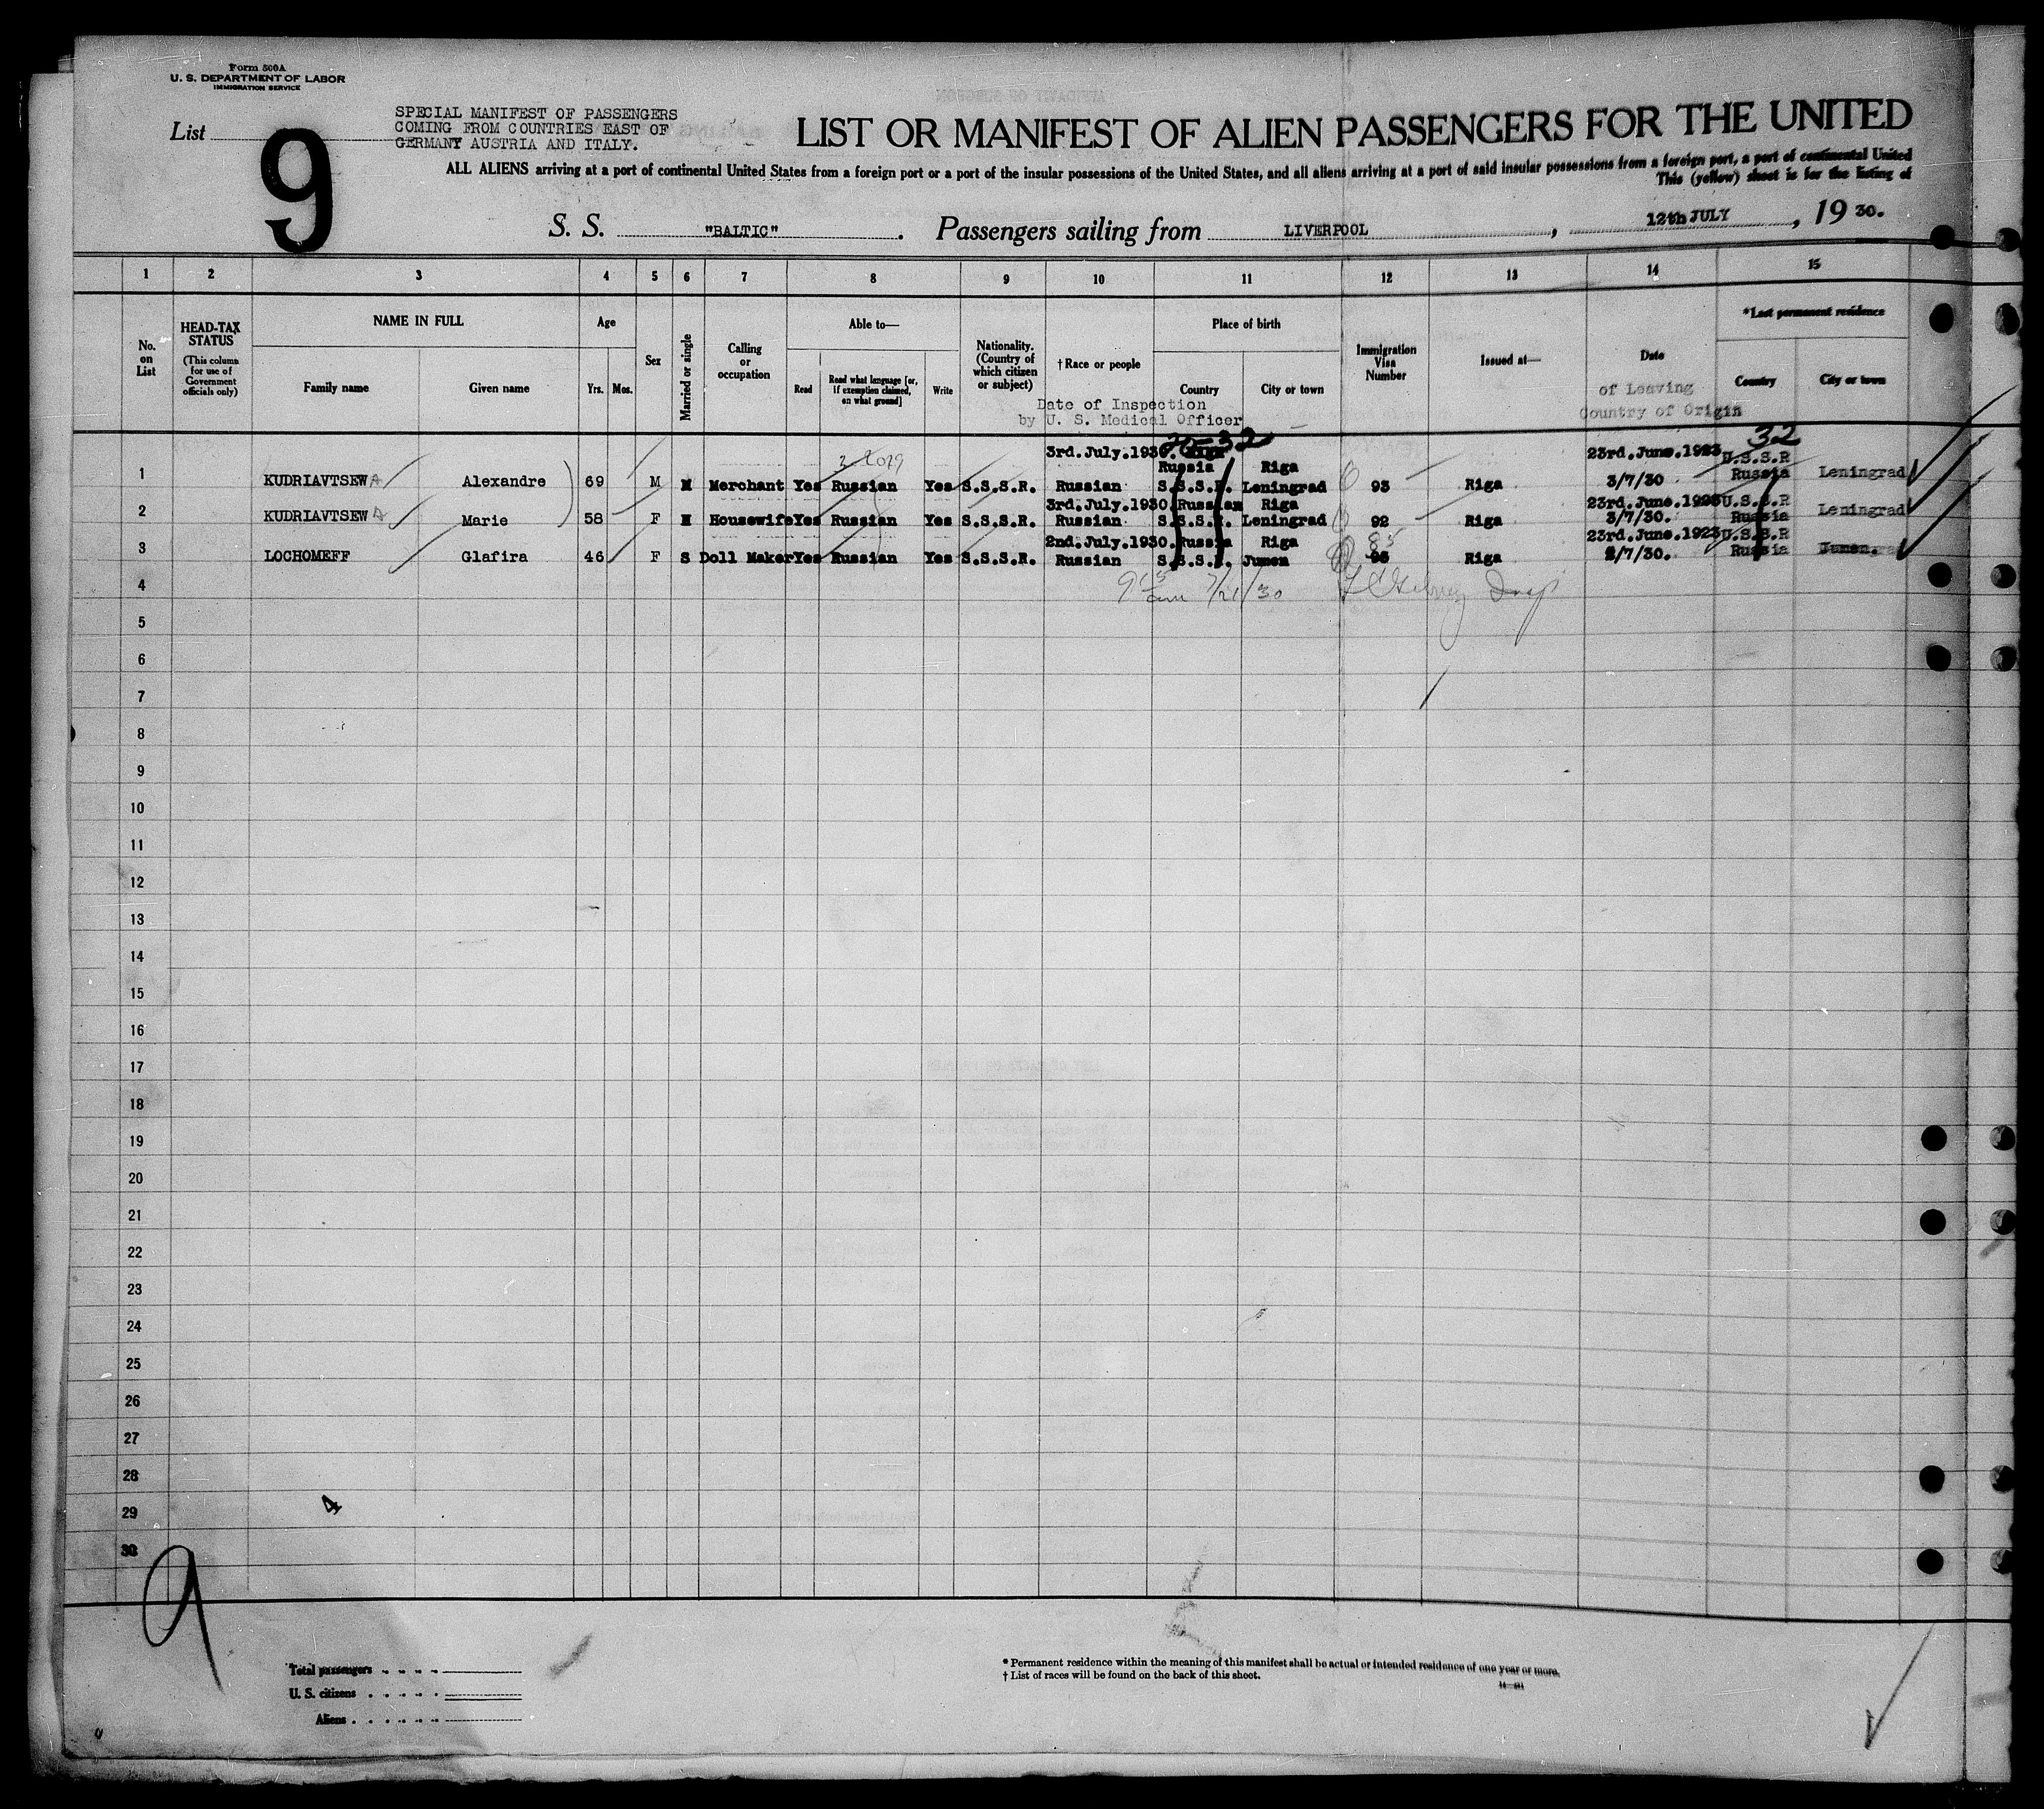 Form 500A
U. S. DEPARTMENT OF LABOR
IMMIGRATION SERVICE
List
9
SPECIAL MANIFEST OF PASSENGERS
COMING FROM COUNTRIES EAST OF
GERMANY AUSTRIA AND ITALY.
LIST OR MANIFEST OF ALIEN PASSENGERS FOR THE UNITED
ALL ALIENS arriving at a port of continental United States from a foreign port or a port of the insular possessions of the United States, and all aliens arriving at a port of said insular possessions from a foreign port, a port of continental United
This (yellow) sheet is for the listing of
S. S. "BALTIC". Passengers sailing from LIVERPOOL, 12th JULY, 19 30.
1 2 3 4 5 6 7 8 9 10 11 12 13 14 15
No. on List
HEAD-TAX STATUS
(This column for use of Government officials only)
NAME IN FULL
Family name Given name
Age
Yrs. Mos.
Sex
Married or single
Calling or occupation
Able to—
Read
Read what language [or, if exemption claimed, on what ground]
Write
Nationality. (Country of which citizen or subject)
† Race or people
Place of birth
Country City or town
Date of Inspection
by U. S. Medical Officer
Immigration Visa Number
Issued at—
Date
of Leaving
Country of Origin
*Last permanent residence
Country City or town
32
3rd.July.1930. Riga 23rd.June.1923 U.S.S.R
Russia Riga
1 KUDRIAVTSEWA Alexandre 69 M M Merchant Yes Russian Yes S.S.S.R. Russian S.S.S.R. Leningrad 93 Riga 3/7/30 Russia Leningrad
3rd.July.1930. Russian Riga 23rd.June.1923 U.S.S.R
2 KUDRIAVTSEWA Marie 58 F M Housewife Yes Russian Yes S.S.S.R. Russian S.S.S.R. Leningrad 92 Riga 3/7/30. Russia Leningrad
2nd.July.1930. Russia Riga 85 23rd.June.1923 U.S.S.R
3 LOCHOMEFF Glafira 46 F S Doll Maker Yes Russian Yes S.S.S.R. Russian S.S.S.R. Jumen 95 Riga 2/7/30. Russia Jumen.
4 7/21/30
5
6
7
8
9
10
11
12
13
14
15
16
17
18
19
20
21
22
23
24
25
26
27
28
29
30
4
9
Total passengers
U. S. citizens
Aliens
* Permanent residence within the meaning of this manifest shall be actual or intended residence of one year or more.
† List of races will be found on the back of this sheet.